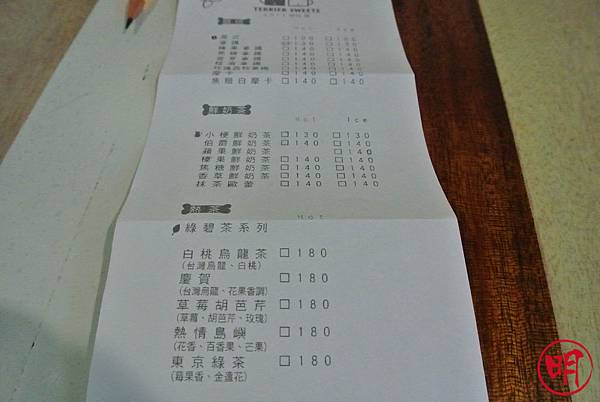 TERRIER SWEETS
咖啡
美式 □100 □100
拿鐵 □130 □130
榛果拿鐵 □140 □140
焦糖拿鐵 □140 □140
香草拿鐵 □140 □140
摩卡 □140 □140
焦糖白摩卡 □140 □140
鮮奶茶
Hot Ice
小梗鮮奶茶 □130 □130
伯爵鮮奶茶 □140 □140
蘋果鮮奶茶 □140
榛果鮮奶茶 □140 □140
焦糖鮮奶茶 □140 □140
香草鮮奶茶 □140 □140
抹茶歐蕾 □140 □140
熱茶
Hot
綠碧茶系列
白桃烏龍茶 □180
(台灣烏龍、白桃)
慶賀 □180
(台灣烏龍、花果香調)
草莓胡芭芹 □180
(草莓、胡芭芹、玫瑰)
熱情島嶼 □180
(花香、百香果、芒果)
東京綠茶 □180
(莓果香、金盞花)
明